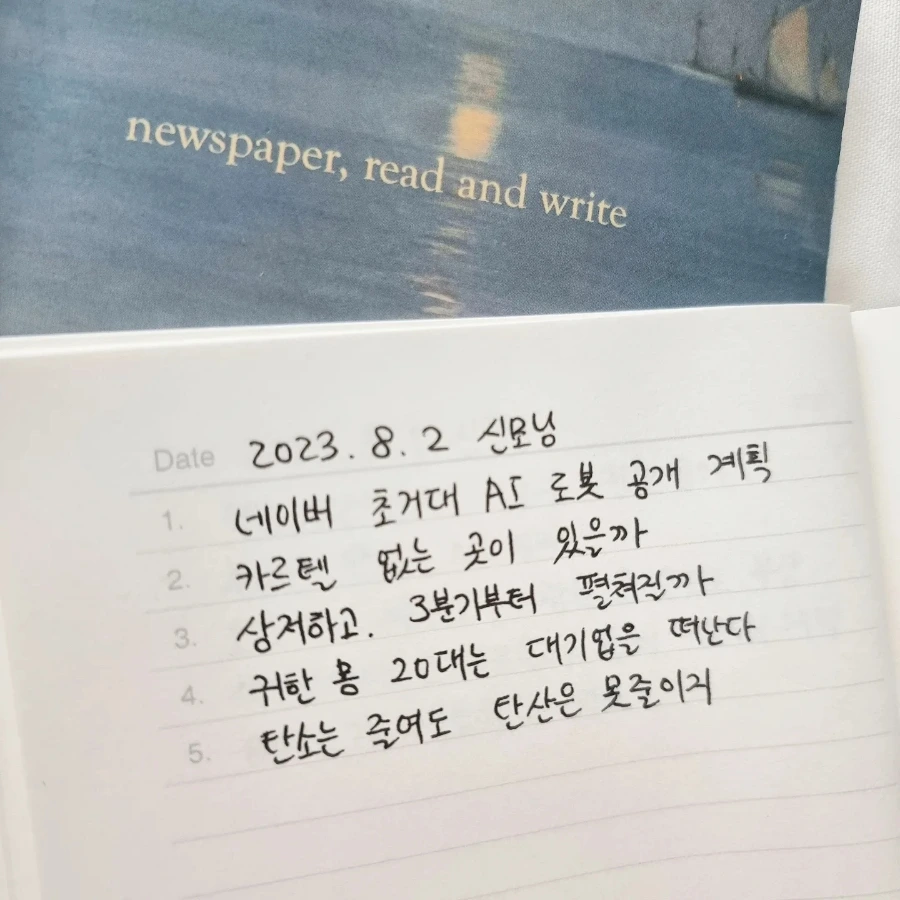 newspaper, read and write
Date 2023. 8. 2 신모닝
1. 네이버 초거대 AI 로봇 공개 계획
2. 카르텔 없는 곳이 있을까
3. 상저하고. 3분기부터 펼쳐질까
4. 귀한 몸 20대는 대기업을 떠난다
5. 탄소는 줄여도 탄산은 못줄이지